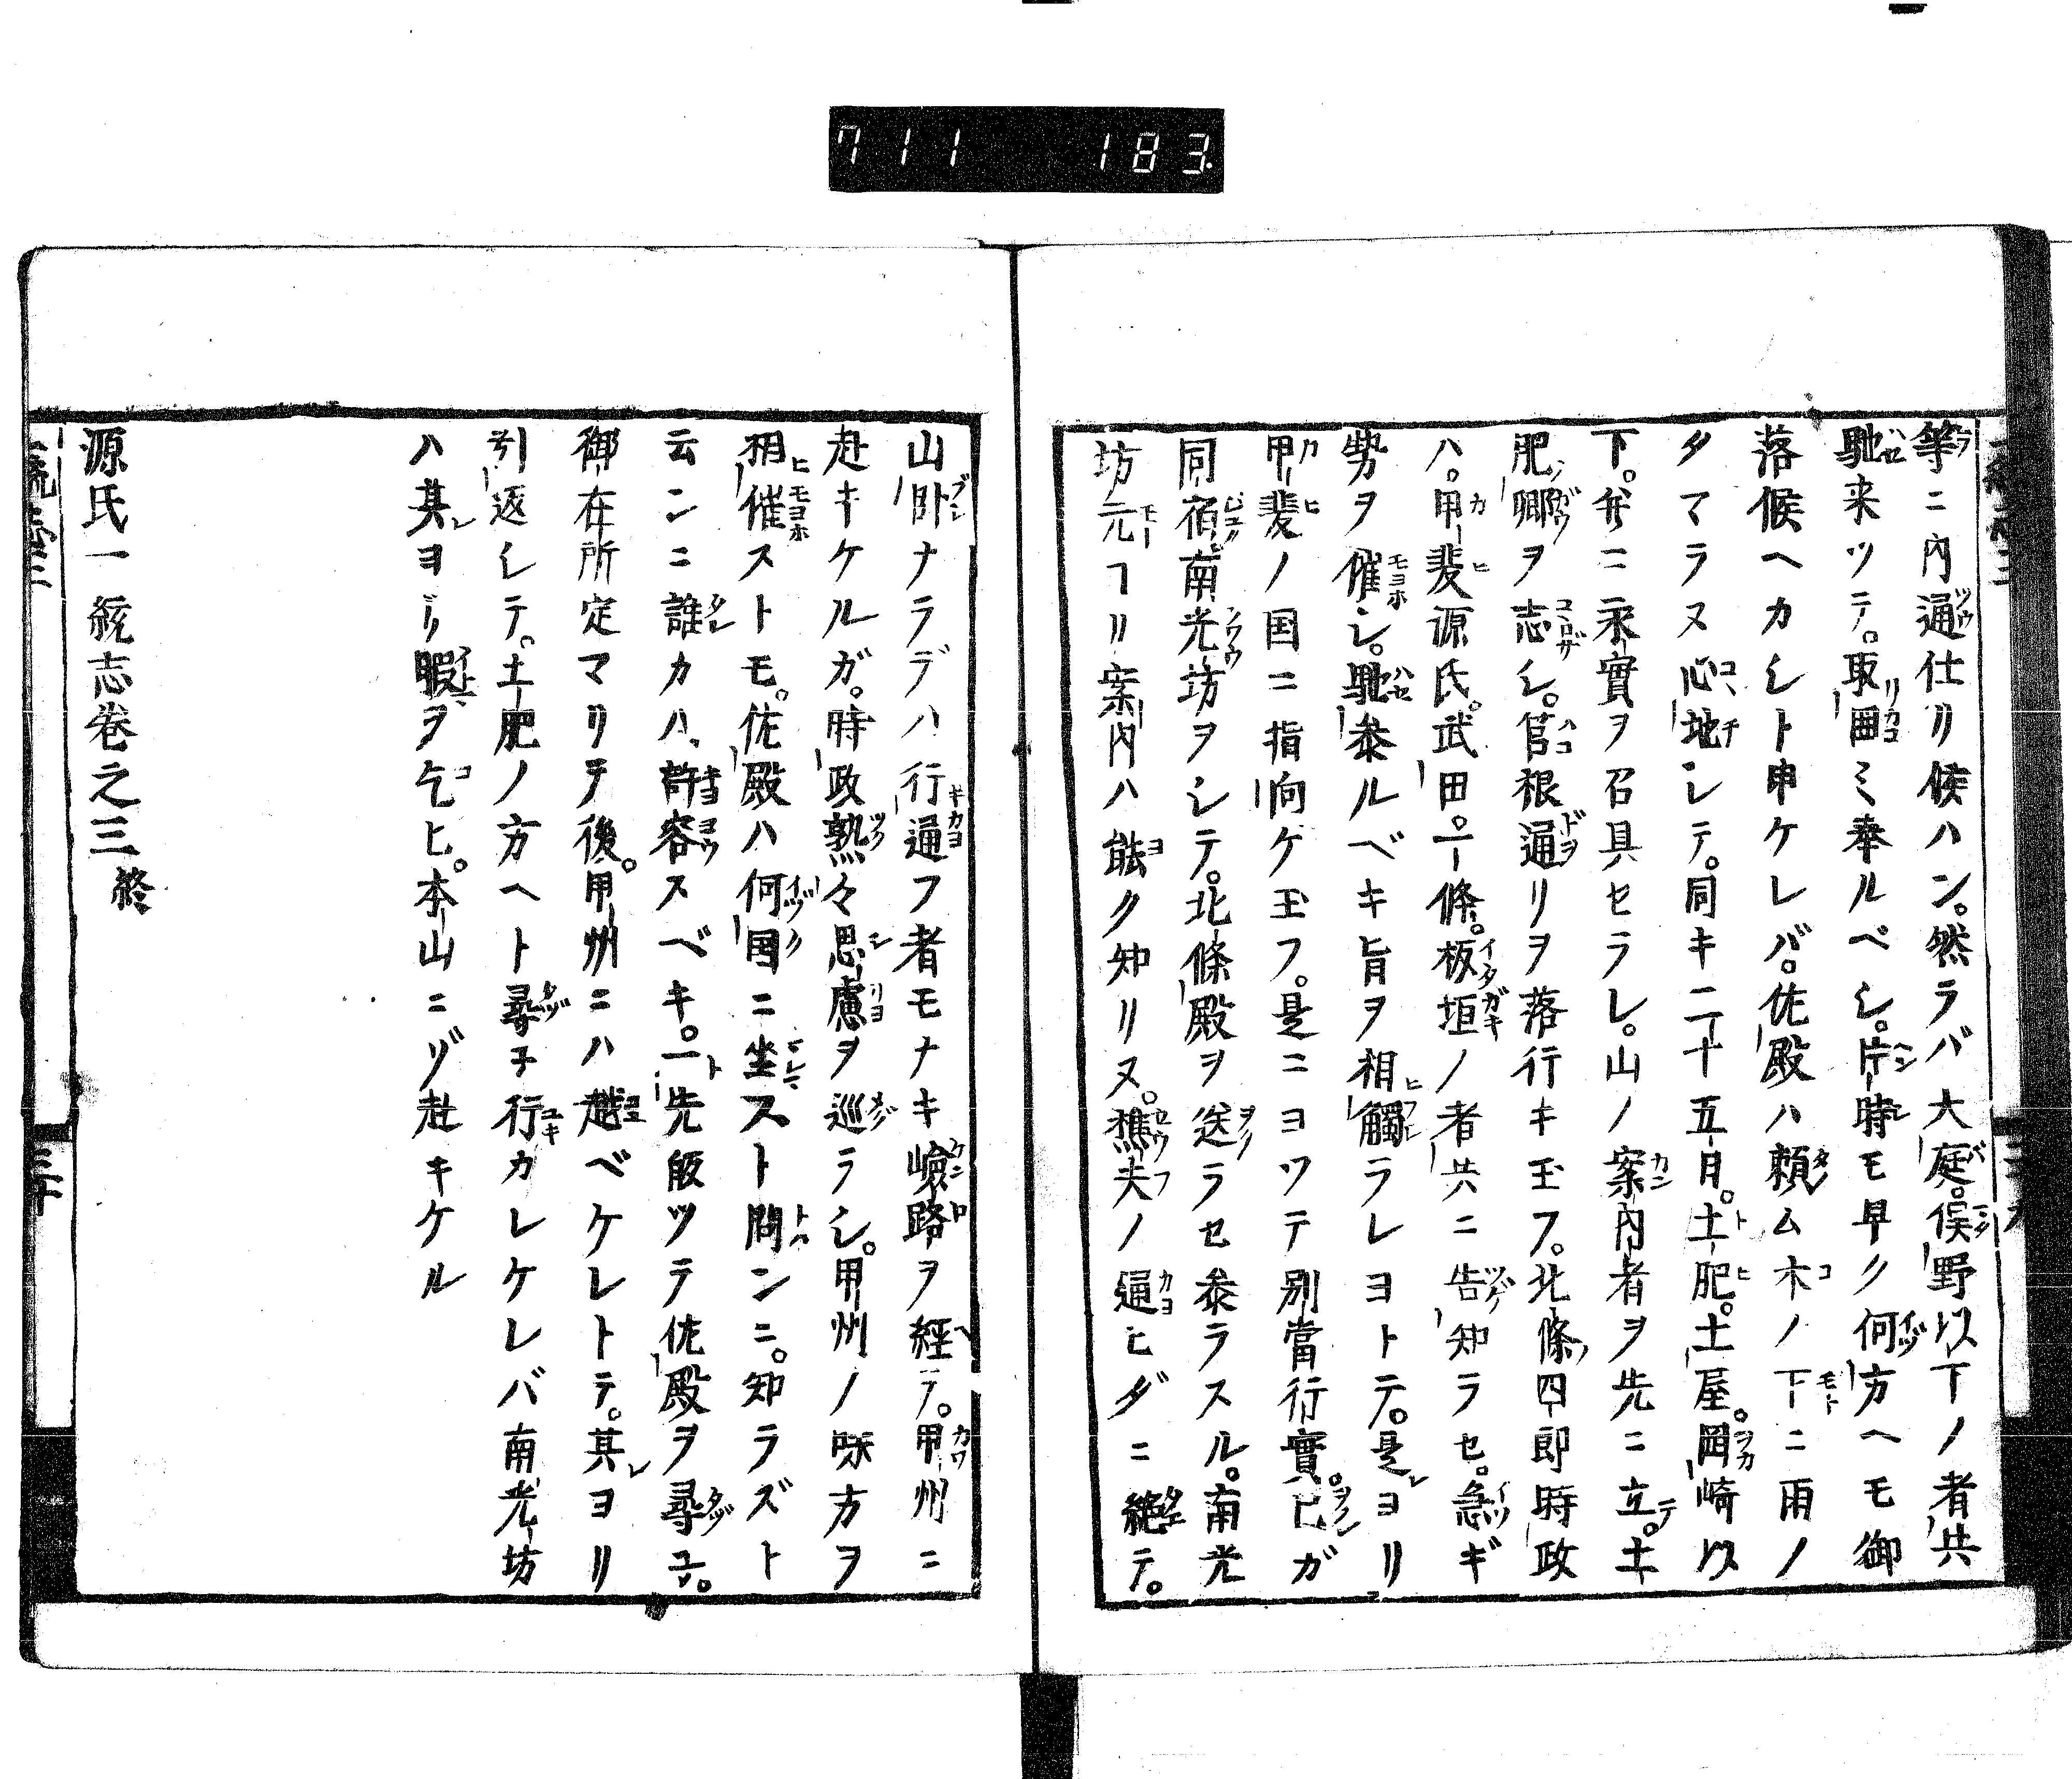 711 183.
等ニ内通仕リ候ハン。然ラバ大庭。俣野以下ノ者共
馳来ツテ。取囲ミ奉ルベシ。片時モ早ク何方ヘモ御
落候ヘカシト申ケレバ。佐殿ハ頼ム木ノ下ニ雨ノ
タマラヌ心地シテ。同キ二十五月。土肥。土屋。岡崎以
下。并ニ永實ヲ召具セラレ。山ノ案内者ヲ先ニ立。土
肥郷ヲ志シ。筥根通リヲ落行キ玉フ。北條四郎時政
ハ。甲斐源氏。武田。一條。板垣ノ者共ニ告知ラセ。急ギ
勢ヲ催シ。馳参ルベキ旨ヲ相觸ラレヨトテ。是ヨリ
甲斐ノ国ニ指向ケ玉フ。是ニヨツテ別當行實。已ガ
同宿南光坊ヲシテ。北條殿ヲ送ラセ参ラスル。南光
坊元ヨリ案内ハ能ク知リヌ。樵夫ノ通ヒダニ絶テ。
山臥ナラデハ行通フ者モナキ嶮路ヲ経テ。甲州ニ
赴キケルガ。時政熟々思慮ヲ巡ラシ。甲州ノ味方ヲ
相催ストモ。佐殿ハ何国ニ坐スト問ンニ。知ラズト
云ンニ誰カハ、許容スベキ。一先皈ツテ佐殿ヲ尋子。
御在所定マリテ後。甲州ニハ越ベケレトテ。其ヨリ
引返シテ。土肥ノ方ヘト尋子行カレケレバ南光坊
ハ其ヨリ暇ヲ乞ヒ。本山ニゾ赴キケル
源氏一統志巻之三終